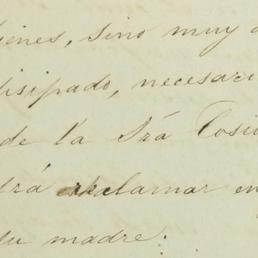 bienes, sino muy
disipado, necesari
de la Srá Cosi
drá reclamar en
su madre.